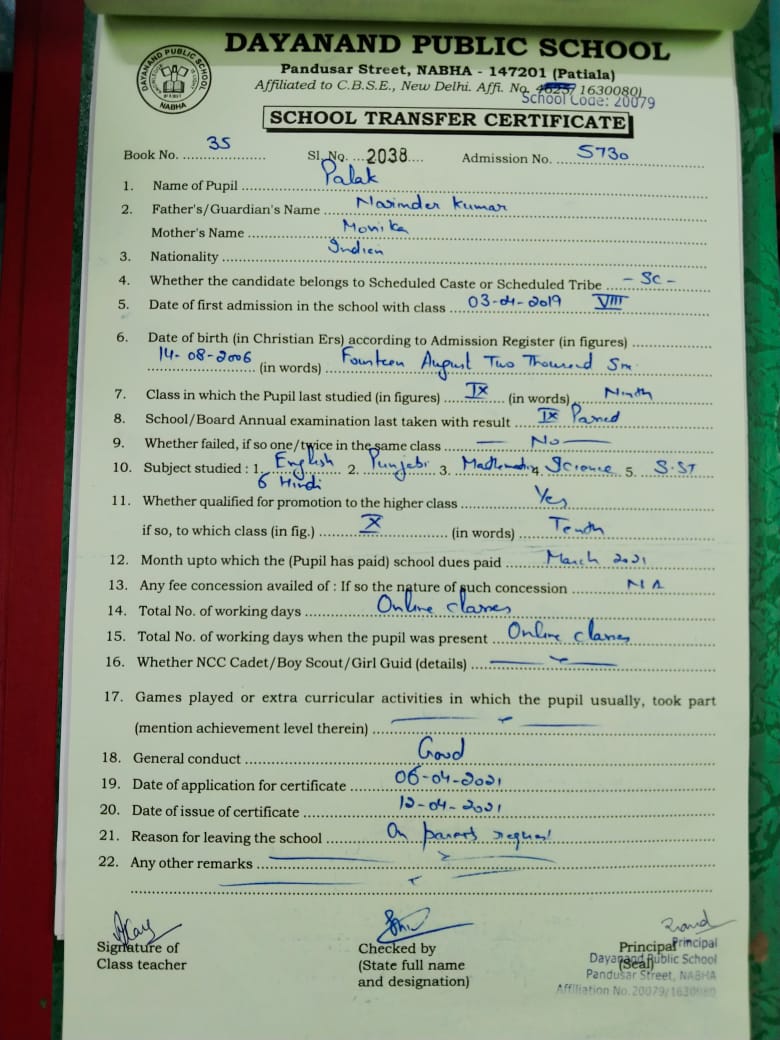 DAYANAND PUBLIC SCHOOL
Pandusar Street, NABHA - 147201 (Patiala)
Affiliated to C.B.S.E., New Delhi. Affi. No. 1630080)
School Code: 20079
DAYANAND PUBLIC SCHOOL
NABHA
SCHOOL TRANSFER CERTIFICATE
Book No. 35 Sl. No. 2038 Admission No. 5730
1. Name of Pupil Palak
2. Father's/Guardian's Name Narinder Kumar
Mother's Name Monika
3. Nationality Indian
4. Whether the candidate belongs to Scheduled Caste or Scheduled Tribe - SC -
5. Date of first admission in the school with class 03-04-2019 VIII
6. Date of birth (in Christian Ers) according to Admission Register (in figures)
14-08-2006 (in words) Fourteen August Two Thousand Six
7. Class in which the Pupil last studied (in figures) IX (in words) Ninth
8. School/Board Annual examination last taken with result IX Passed
9. Whether failed, if so one/twice in the same class No
10. Subject studied : 1. English 2. Punjabi 3. Mathematics 4. Science 5. S.ST
6 Hindi
11. Whether qualified for promotion to the higher class Yes
if so, to which class (in fig.) X (in words) Tenth
12. Month upto which the (Pupil has paid) school dues paid March 2021
13. Any fee concession availed of : If so the nature of such concession NA
14. Total No. of working days Online classes
15. Total No. of working days when the pupil was present Online classes
16. Whether NCC Cadet/Boy Scout/Girl Guid (details)
17. Games played or extra curricular activities in which the pupil usually, took part
(mention achievement level therein)
18. General conduct Good
19. Date of application for certificate 06-04-2021
20. Date of issue of certificate 12-04-2021
21. Reason for leaving the school On parents request
22. Any other remarks
Signature of
Class teacher
Checked by
(State full name
and designation)
Principal
(Seal)
Principal
Dayanand Public School
Pandusar Street, NABHA
Affiliation No. 20079/1630080